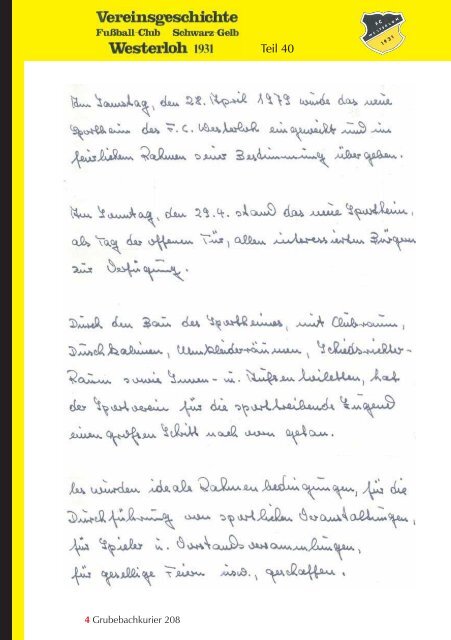 Vereinsgeschichte
Fußball-Club Schwarz-Gelb
Westerloh 1931 Teil 40
FC
WESTERLOH
1931
Am Samstag, den 28. April 1979 wurde das neue
Sportheim des F.C. Westerloh eingeweiht und im
feierlichem Rahmen seiner Bestimmung übergeben.
Am Sonntag, den 29.4. stand das neue Sportheim,
als Tag der offenen Tür, allen interessierten Bürgern
zur Verfügung.
Durch den Bau des Sportheimes, mit Clubraum,
Duschkabinen, Umkleideräumen, Schiedsrichter-
Raum sowie Innen- u. Außentoiletten, hat
der Sportverein für die sporttreibende Jugend
einen großen Schritt nach vorn getan.
Es wurden ideale Rahmenbedingungen, für die
Durchführung von sportlichen Veranstaltungen,
für Spieler u. Vorstandsversammlungen,
für gesellige Feiern usw., geschaffen.
4 Grubebachkurier 208